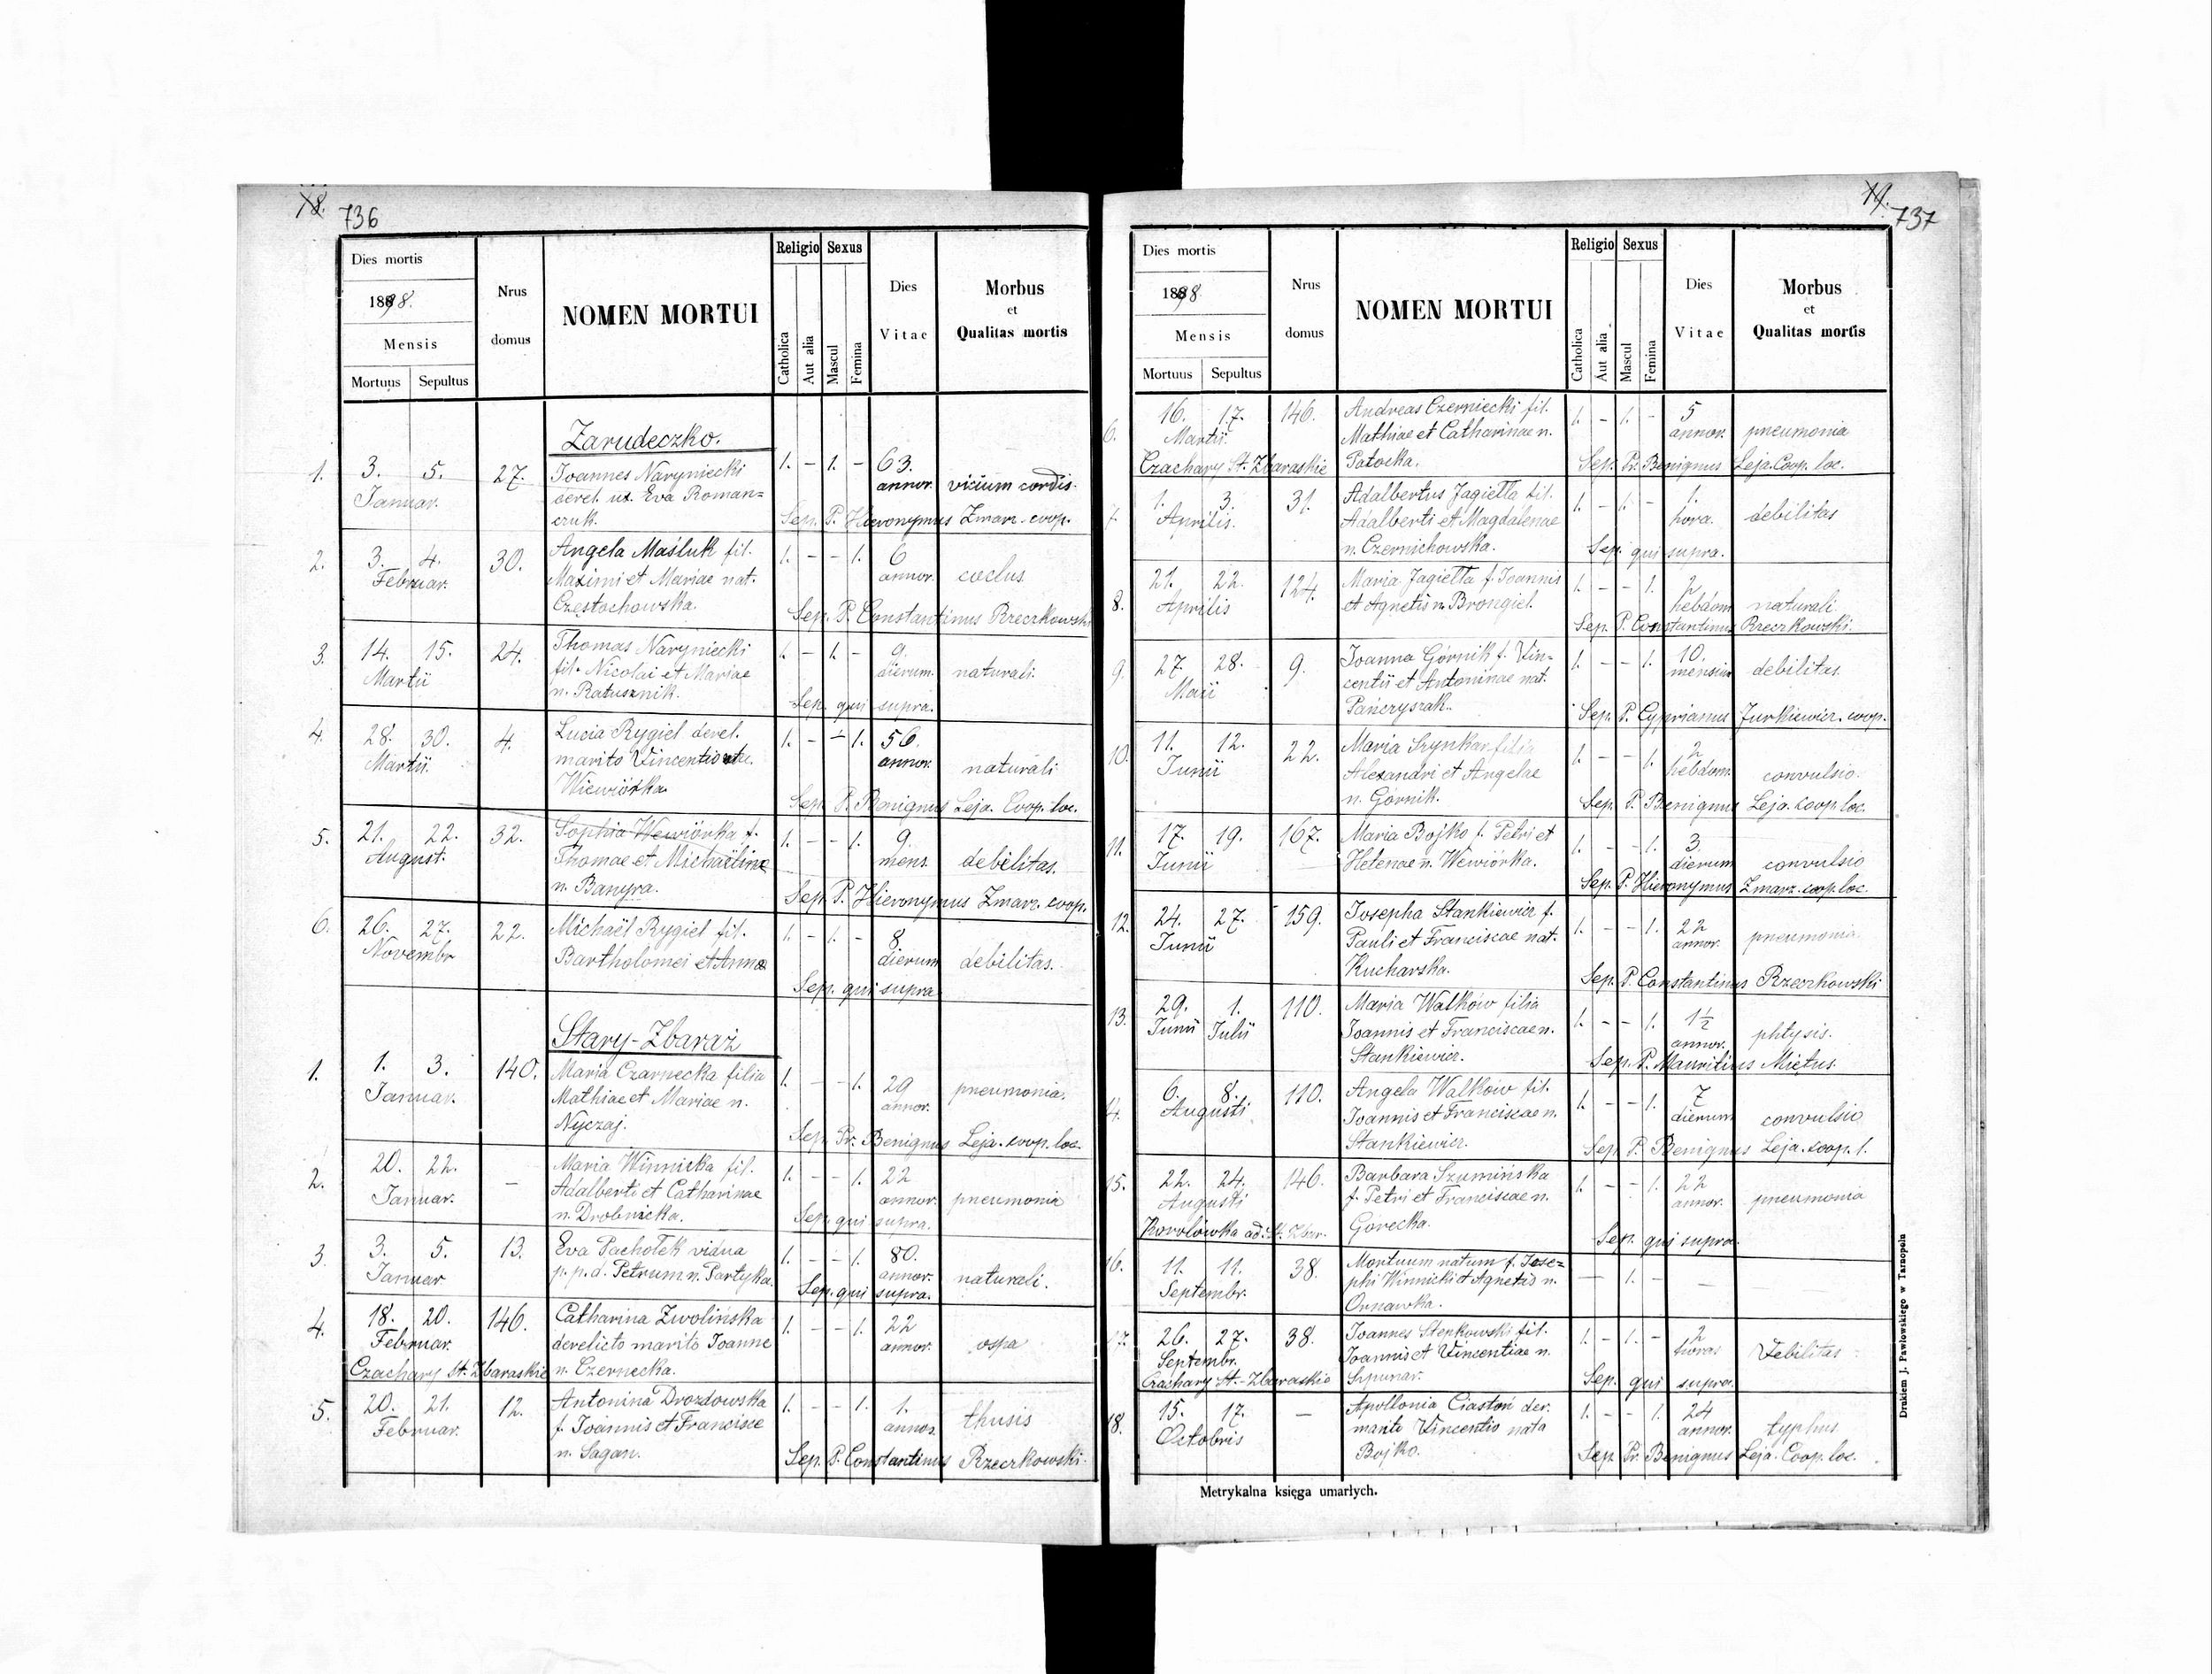 18. 736
Dies mortis
1898.
Mensis
Mortuus Sepultus
Nrus
domus
NOMEN MORTUI
Religio Sexus
Catholica
Aut alia
Mascul
Femina
Dies
Vitae
Morbus
et
Qualitas mortis
Zarudeczko.
1. 3. 5. 27. Joannes Naryniecki 1. – 1. – 63.
Januar. derel. ux. Eva Roman= annor. vicium cordis.
czuk. Sep. P. Hieronymus Zmarz. coop.
2. 3. 4. 30. Angela Maśluk fil. 1. – – 1. 6
Februar. Maximi et Mariae nat. annor. coclus
Częstochowska. Sep. P. Constantinus Rzeczkowski
3. 14. 15. 24. Thomas Naryniecki 1. – 1. – 9.
Martii fil. Nicolai et Mariae dierum naturali.
n. Ratusznik. Sep. qui supra.
4. 28. 30. 4. Lucia Rygiel derel. 1. – – 1. 56.
Martii. marito Vincentio annor. naturali
Wiewiórka Sep. P. Benignus Leja. Coop. loc.
5. 21. 22. 32. Sophia Wewiórka f. 1. – – 1. 9.
August. Thomae et Michaëlinae mens. debilitas.
n. Banyra. Sep. P. Hieronymus Zmarz. coop.
6. 26. 27. 22. Michaël Rygiel fil. 1. – 1. – 8.
Novembr Bartholomei et Annae dierum debilitas.
Sep. qui supra
Stary-Zbaraż
1. 1. 3. 140. Maria Czarnecka filia 1. – – 1. 29 pneumonia.
Januar. Mathiae et Mariae n. annor.
Nyczaj. Sep. Pr. Benignus Leja. coop. loc.
2. 20. 22. – Maria Winnicka fil. 1. – – 1. 22
Januar. Adalberti et Catharinae annor. pneumonia
n. Drobnicka. Sep. qui supra.
3. 3. 5. 13. Eva Pachołek vidua 1. – – 1. 80.
Januar p. p. d. Petrum n. Partyka. annor. naturali.
Sep. qui supra.
4. 18. 20. 146. Catharina Zwolińska 1. – – 1. 22
Februar. derelicto marito Joanne annor. ospa
Czachary St. Zbaraskie n. Czernecka.
5. 20. 21. 12. Antonina Drozdowska 1. – – 1. 1.
Februar. f. Joannis et Francisce annor. thusis
n. Sagan. Sep. P. Constantinus Rzeczkowski.
19. 737
Dies mortis
1898
Mensis
Mortuus Sepultus
Nrus
domus
NOMEN MORTUI
Religio Sexus
Catholica
Aut alia
Mascul
Femina
Dies
Vitae
Morbus
et
Qualitas mortis
6. 16. 17. 146. Andreas Czerniecki fil. 1. – 1. – 5
Martii. Mathiae et Catharinae n. annor. pneumonia
Czachary St. Zbaraskie Patocka. Sep. Pr. Benignus Leja. Coop. loc.
7. 1. 3. 31. Adalbertus Jagiełła fil. 1. – 1. – 1.
Aprilis. Adalberti et Magdalenae hora. debilitas
n. Czernichowska. Sep. qui supra.
8. 21. 22. 124. Maria Jagiełła f. Joannis 1. – – 1. 2
Aprilis et Agnetis n. Brongiel. hebdom naturali.
Sep. P. Constantinus Rzeczkowski.
9. 27. 28. 9. Joanna Górnik f. Vin= 1. – – 1. 10.
Maii centii et Antoninae nat. mensium debilitas.
Pańczyszak. Sep. P. Cyprianus Jurkiewicz. coop.
10. 11. 12. 22. Maria Szynkar filia 1. – – 1. 2
Junii Alexandri et Angelae hebdom. convulsio.
n. Górnik. Sep. P. Benignus Leja. coop. loc.
11. 17. 19. 167. Maria Bojko f. Petri et 1. – – 1. 3.
Junii Helenae n. Wewiórka. dierum convulsio
Sep. P. Hieronymus Zmarz. coop. loc.
12. 24. 27. 159. Josepha Stankiewicz f. 1. – – 1. 22
Junii Pauli et Franciscae nat. annor. pneumonia.
Kucharska. Sep. P. Constantinus Rzeczkowski
13. 29. 1. 110. Maria Walków filia 1. – – 1. 1½
Junii Julii Joannis et Franciscae n. annor. phtysis.
Stankiewicz. Sep. P. Mauritius Miętus.
14. 6. 8. 110. Angela Walków fil. 1. – – 1. 7
Augusti Joannis et Franciscae n. dierum convulsio
Stankiewicz. Sep. P. Benignus Leja. coop. l.
15. 22. 24. 146. Barbara Szumińska 1. – – 1. 22
Augusti f. Petri et Franciscae n. annor. pneumonia
Korolówka ad. St. Zbar. Górecka. Sep. qui supra.
16. 11. 11. 38. Mortuum natum f. Jose= – 1. – –
Septembr. phi Winnicki et Agnetis n.
Ornawka.
17. 26. 27. 38. Joannes Stepkowski fil. 1. – 1. – 2
Septembr. Joannis et Vincentiae n. horas Debilitas
Czachary St.-Zbaraskie Szpunar. Sep. qui supra.
18. 15. 17. – Apollonia Ciastoń der. 1. – – 1. 24
Octobris marito Vincentio nata annor. typhus
Bojko. Sep. Pr. Benignus Leja. Coop. loc.
Metrykalna księga umarłych.
Drukiem J. Pawłowskiego w Tarnopolu